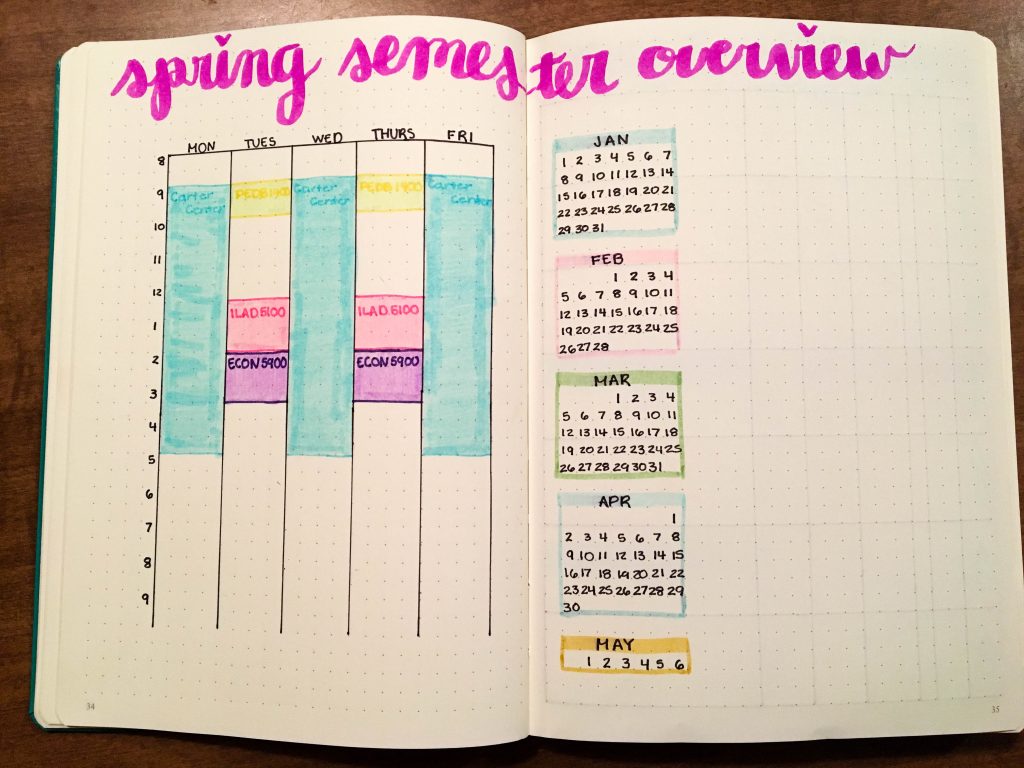 spring semester overview
MON TUES WED THURS FRI
8
9
Carter Center PEDB1900 Carter Center PEDB1900 Carter Center
10
11
12
ILAD5100 ILAD5100
1
2
ECON5900 ECON5900
3
4
5
6
7
8
9
34
JAN
1 2 3 4 5 6 7
8 9 10 11 12 13 14
15 16 17 18 19 20 21
22 23 24 25 26 27 28
29 30 31
FEB
1 2 3 4
5 6 7 8 9 10 11
12 13 14 15 16 17 18
19 20 21 22 23 24 25
26 27 28
MAR
1 2 3 4
5 6 7 8 9 10 11
12 13 14 15 16 17 18
19 20 21 22 23 24 25
26 27 28 29 30 31
APR
1
2 3 4 5 6 7 8
9 10 11 12 13 14 15
16 17 18 19 20 21 22
23 24 25 26 27 28 29
30
MAY
1 2 3 4 5 6
35